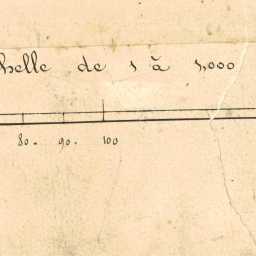 helle de 1 à 1,000
80. 90. 100